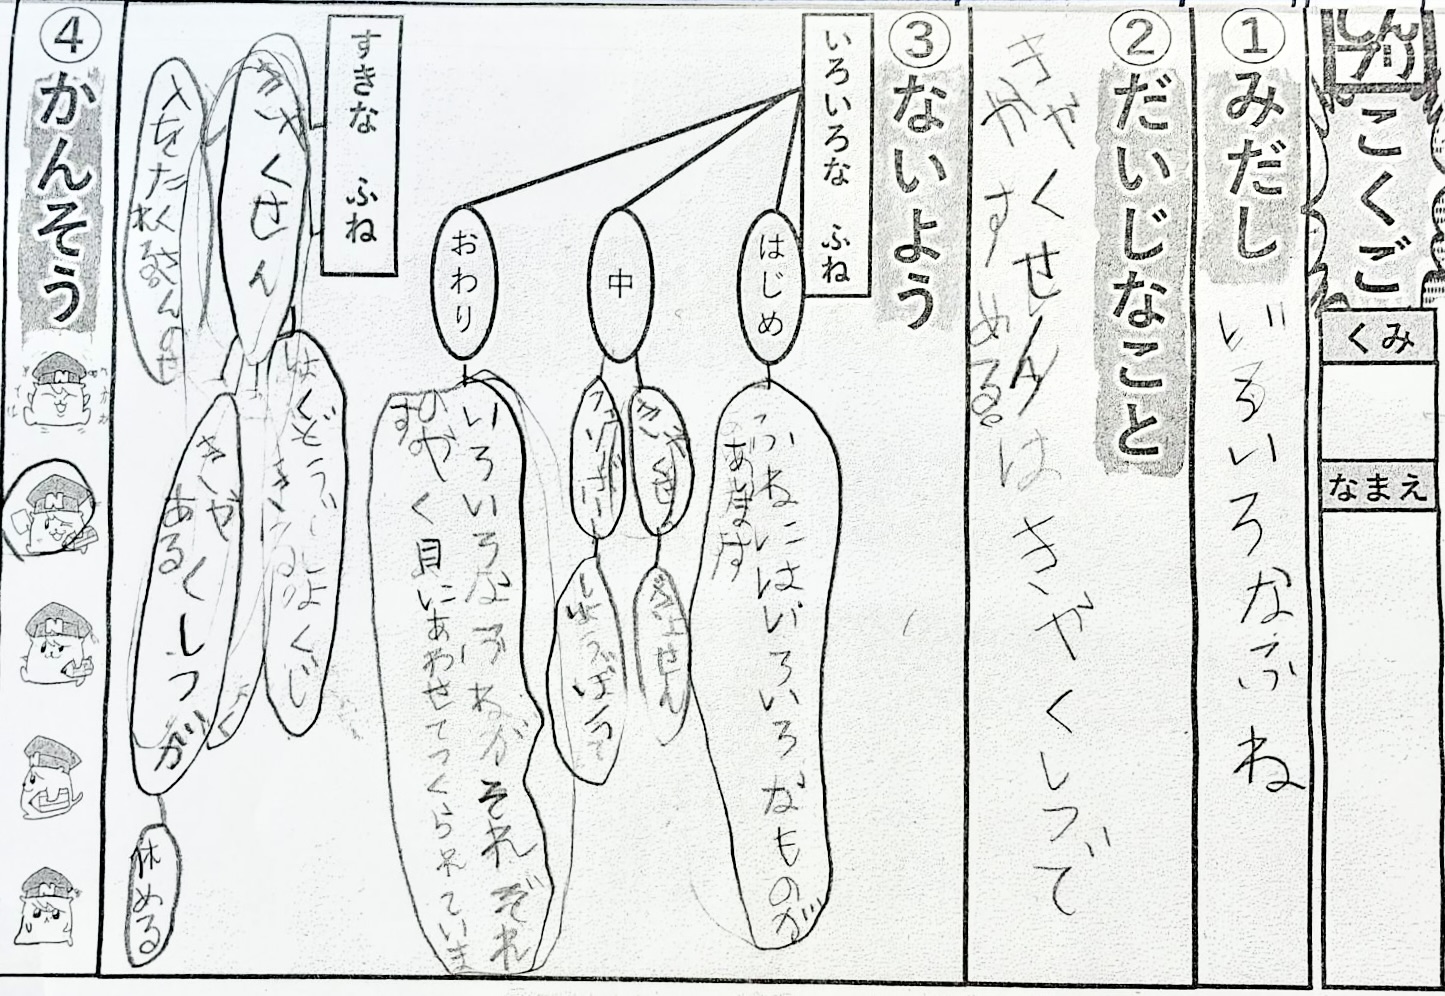 しんプリ
こくご
くみ
なまえ
①みだし
いろいろなふね
②だいじなこと
きゃくせんはきゃくしつで
きゃがすめる。
③ないよう
いろいろな ふね
はじめ
ふねにはいろいろなものが
あります
中
きゃくせん
フェリーボート
おわり
いろいろなふねがそれぞれ
のやく目にあわせてつくられていま
す
すきな ふね
きゃくせん
人をたくさんのせ
れる
しょくじ
きゃくしつが
ある
休める
④かんそう